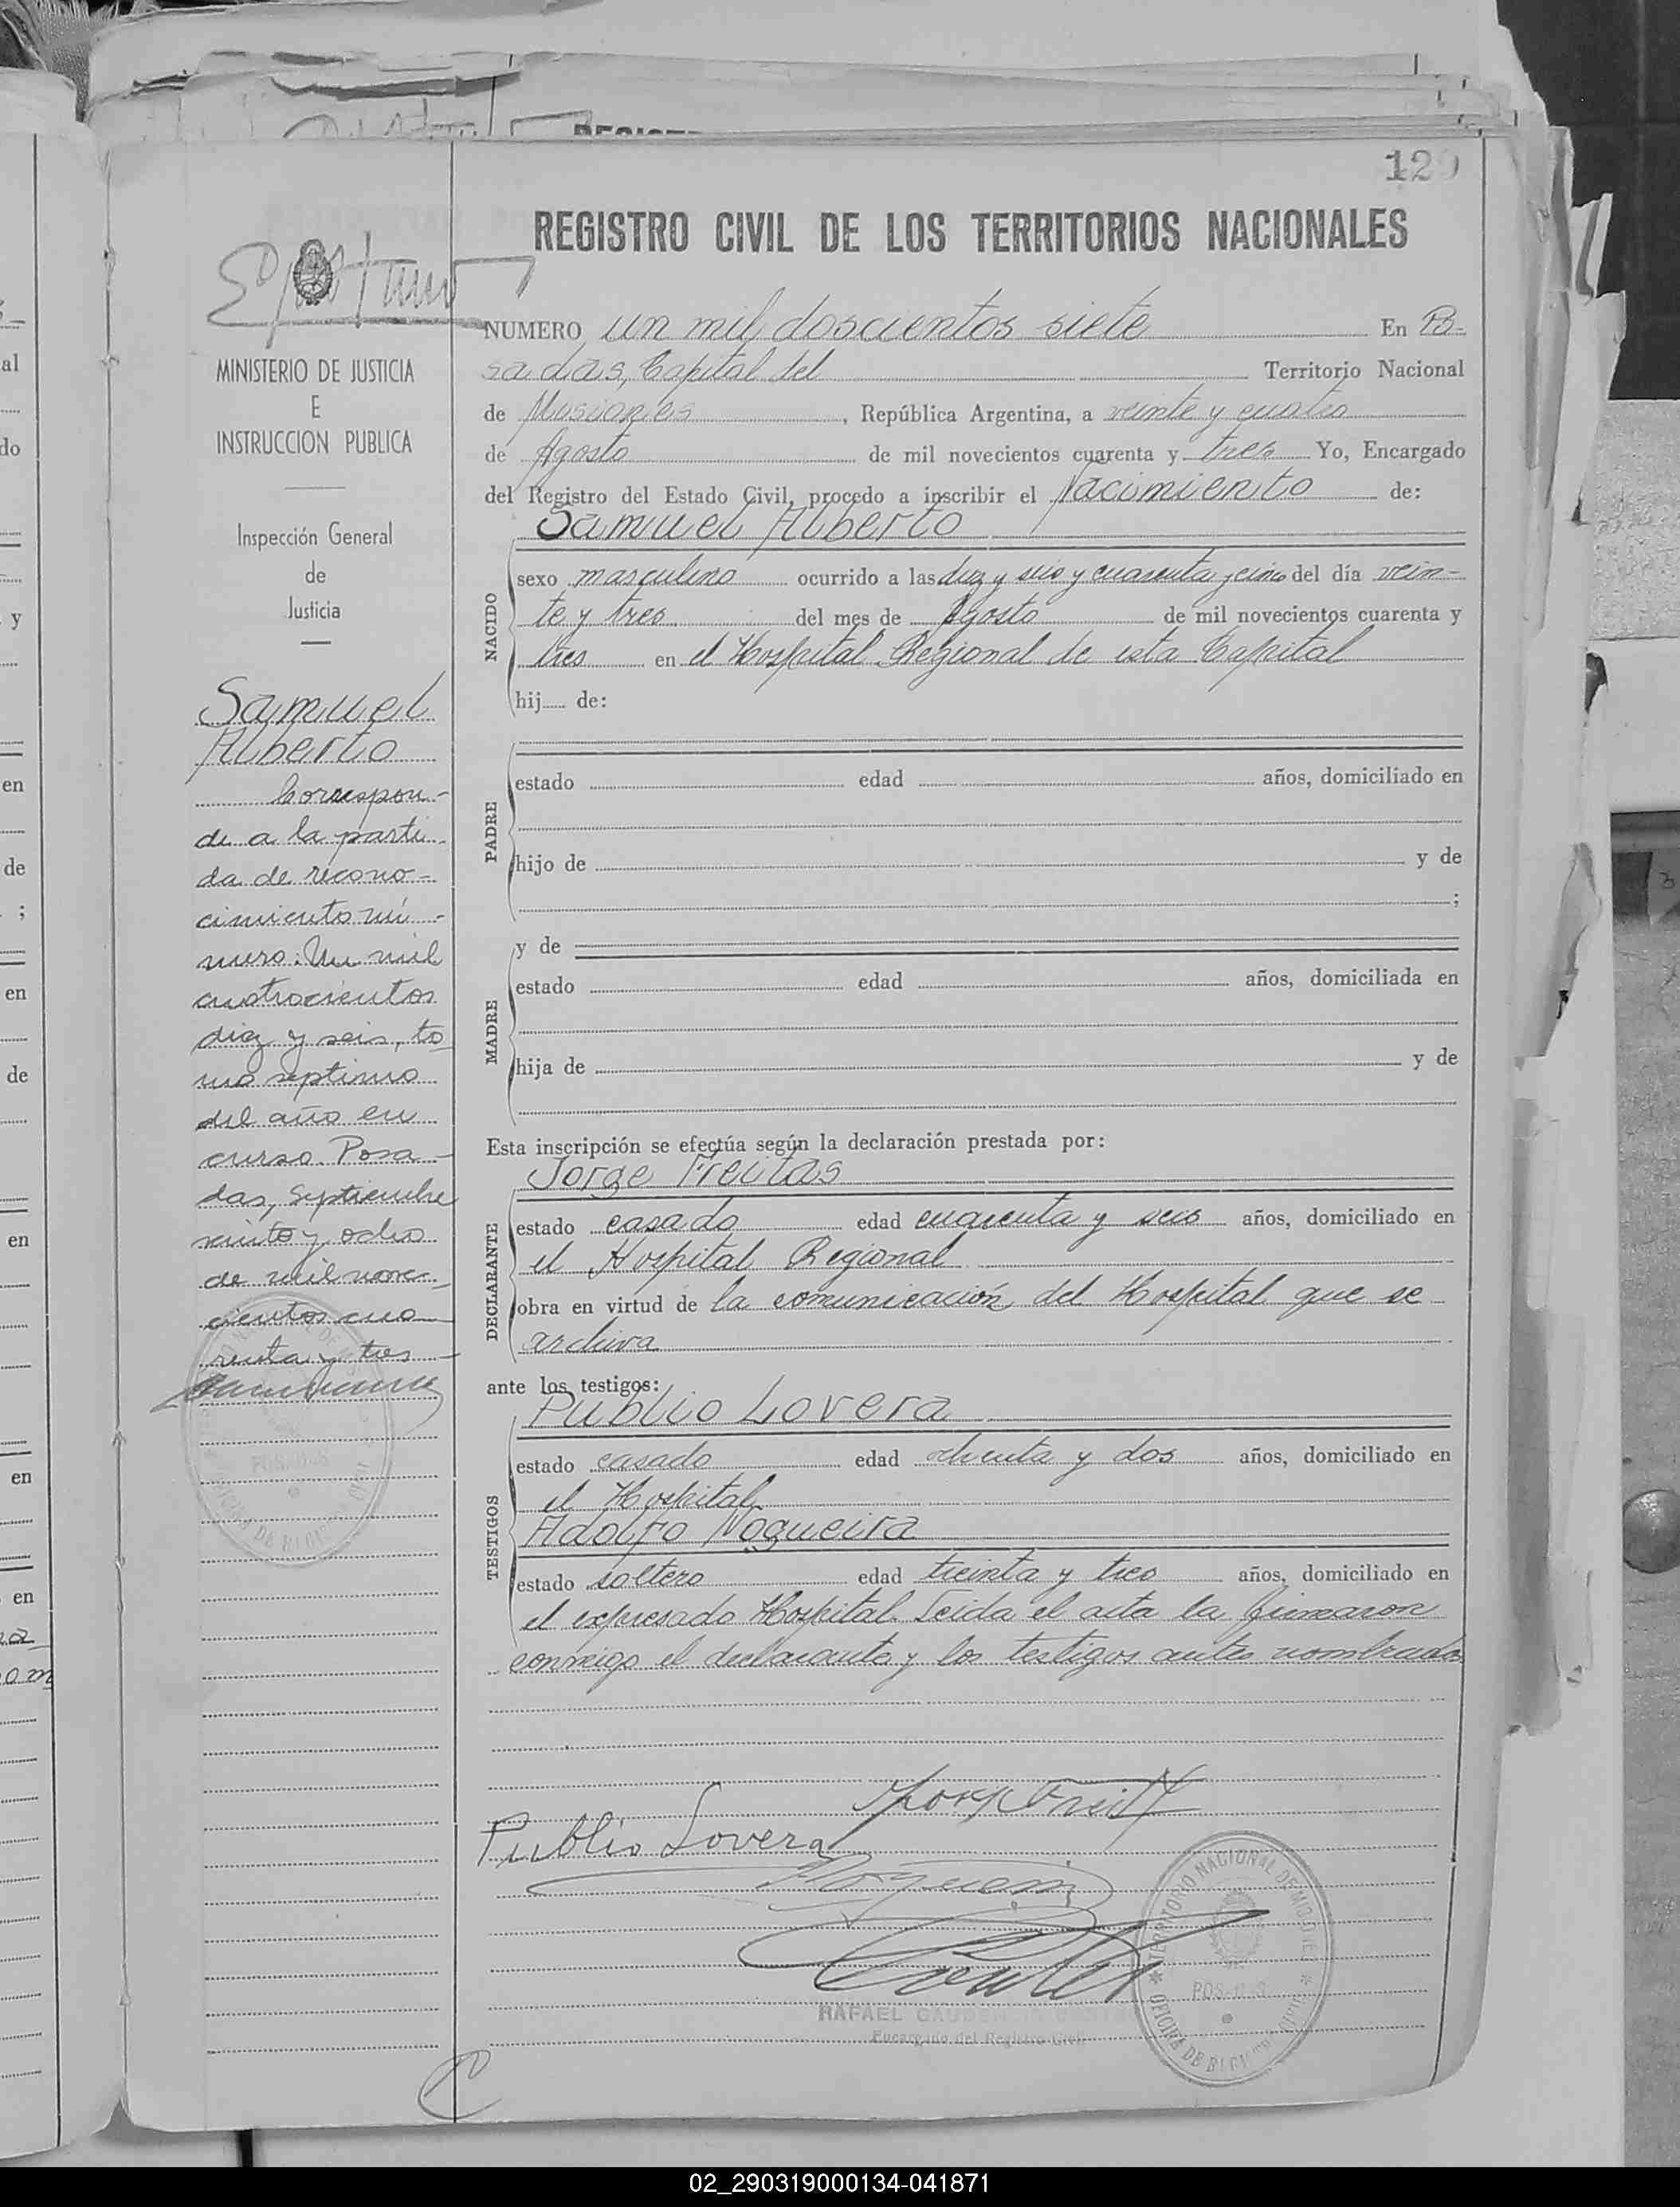 129
REGISTRO CIVIL DE LOS TERRITORIOS NACIONALES
NUMERO un mil doscientos siete En Po-
sadas, Capital del Territorio Nacional
de Misiones, República Argentina, a veinte y cuatro
de Agosto de mil novecientos cuarenta y tres Yo, Encargado
del Registro del Estado Civil, procedo a inscribir el Nacimiento de:
Samuel Alberto
NACIDO
sexo masculino ocurrido a las diez y seis y cuarenta y cinco del día vein-
te y tres del mes de Agosto de mil novecientos cuarenta y
tres en el Hospital Regional de esta Capital
hij de:
PADRE
estado edad años, domiciliado en
hijo de y de
;
MADRE
y de
estado edad años, domiciliada en
hija de y de
Esta inscripción se efectúa según la declaración prestada por:
Jorge Freitas
DECLARANTE
estado casado edad cuarenta y seis años, domiciliado en
el Hospital Regional
obra en virtud de la comunicación del Hospital que se
archiva
ante los testigos:
Publio Lovera
TESTIGOS
estado casado edad ochenta y dos años, domiciliado en
el Hospital
Adolfo Nogueira
estado soltero edad treinta y tres años, domiciliado en
el expresado Hospital. Leida el acta la firmaron
conmigo el declarante y los testigos antes nombrados
Publio Lovera
RAFAEL
Encargado del Registro Civil
TERRITORIO NACIONAL DE MISIONES
POSADAS
OFICINA DE REGISTRO CIVIL
MINISTERIO DE JUSTICIA
E
INSTRUCCION PUBLICA
Inspección General
de
Justicia
Samuel
Alberto
Correspon-
de a la parti-
da de recono-
cimiento nú-
mero: Un mil
cuatrocientos
diez y seis, to
mo septimo
del año en
curso. Posa-
das, Septiembre
veinte y ocho
de mil nove-
cientos cua-
renta y tres
02_290319000134-041871